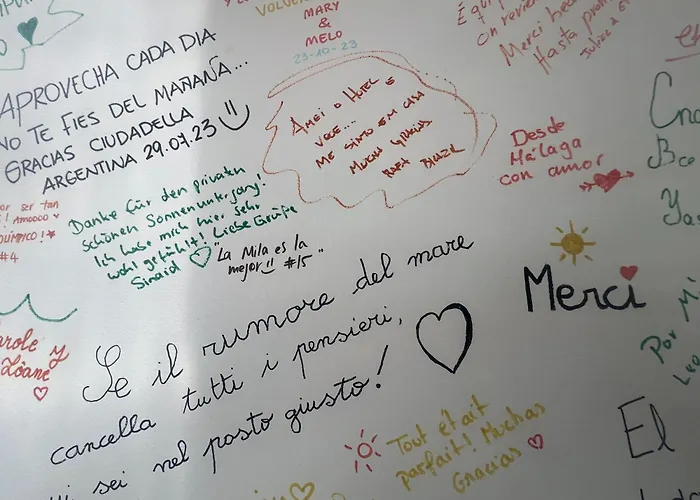 VOLVER
MARY
&
MELO
23-10-23
on revien
Merci beau
Hasta pron
APROVECHA CADA DIA
NO TE FIES DEL MAÑANA...
GRACIAS CIUDADELLA
ARGENTINA 29.07.23
AMEI O HOTEL E
VOCE...
ME SINTO EM CASA
MUCHA GRACIAS
RAFA BRAZIL
Desde
Málaga
con amor
or ser tan
! AMOOOO
OLÍMPICO!
#4
Danke für den privaten
schönen Sonnenuntergang!
Ich habe mich hier sehr
wohl gefühlt! Liebe Grüße
Sinaid
"La Mila es la
mejor!! #15"
Merci
arole y
Loane
Se il rumore del mare
cancella tutti i pensieri,
sei nel posto giusto!
Tout était
parfait! Muchas
Gracias
Por Mi
Leo
El